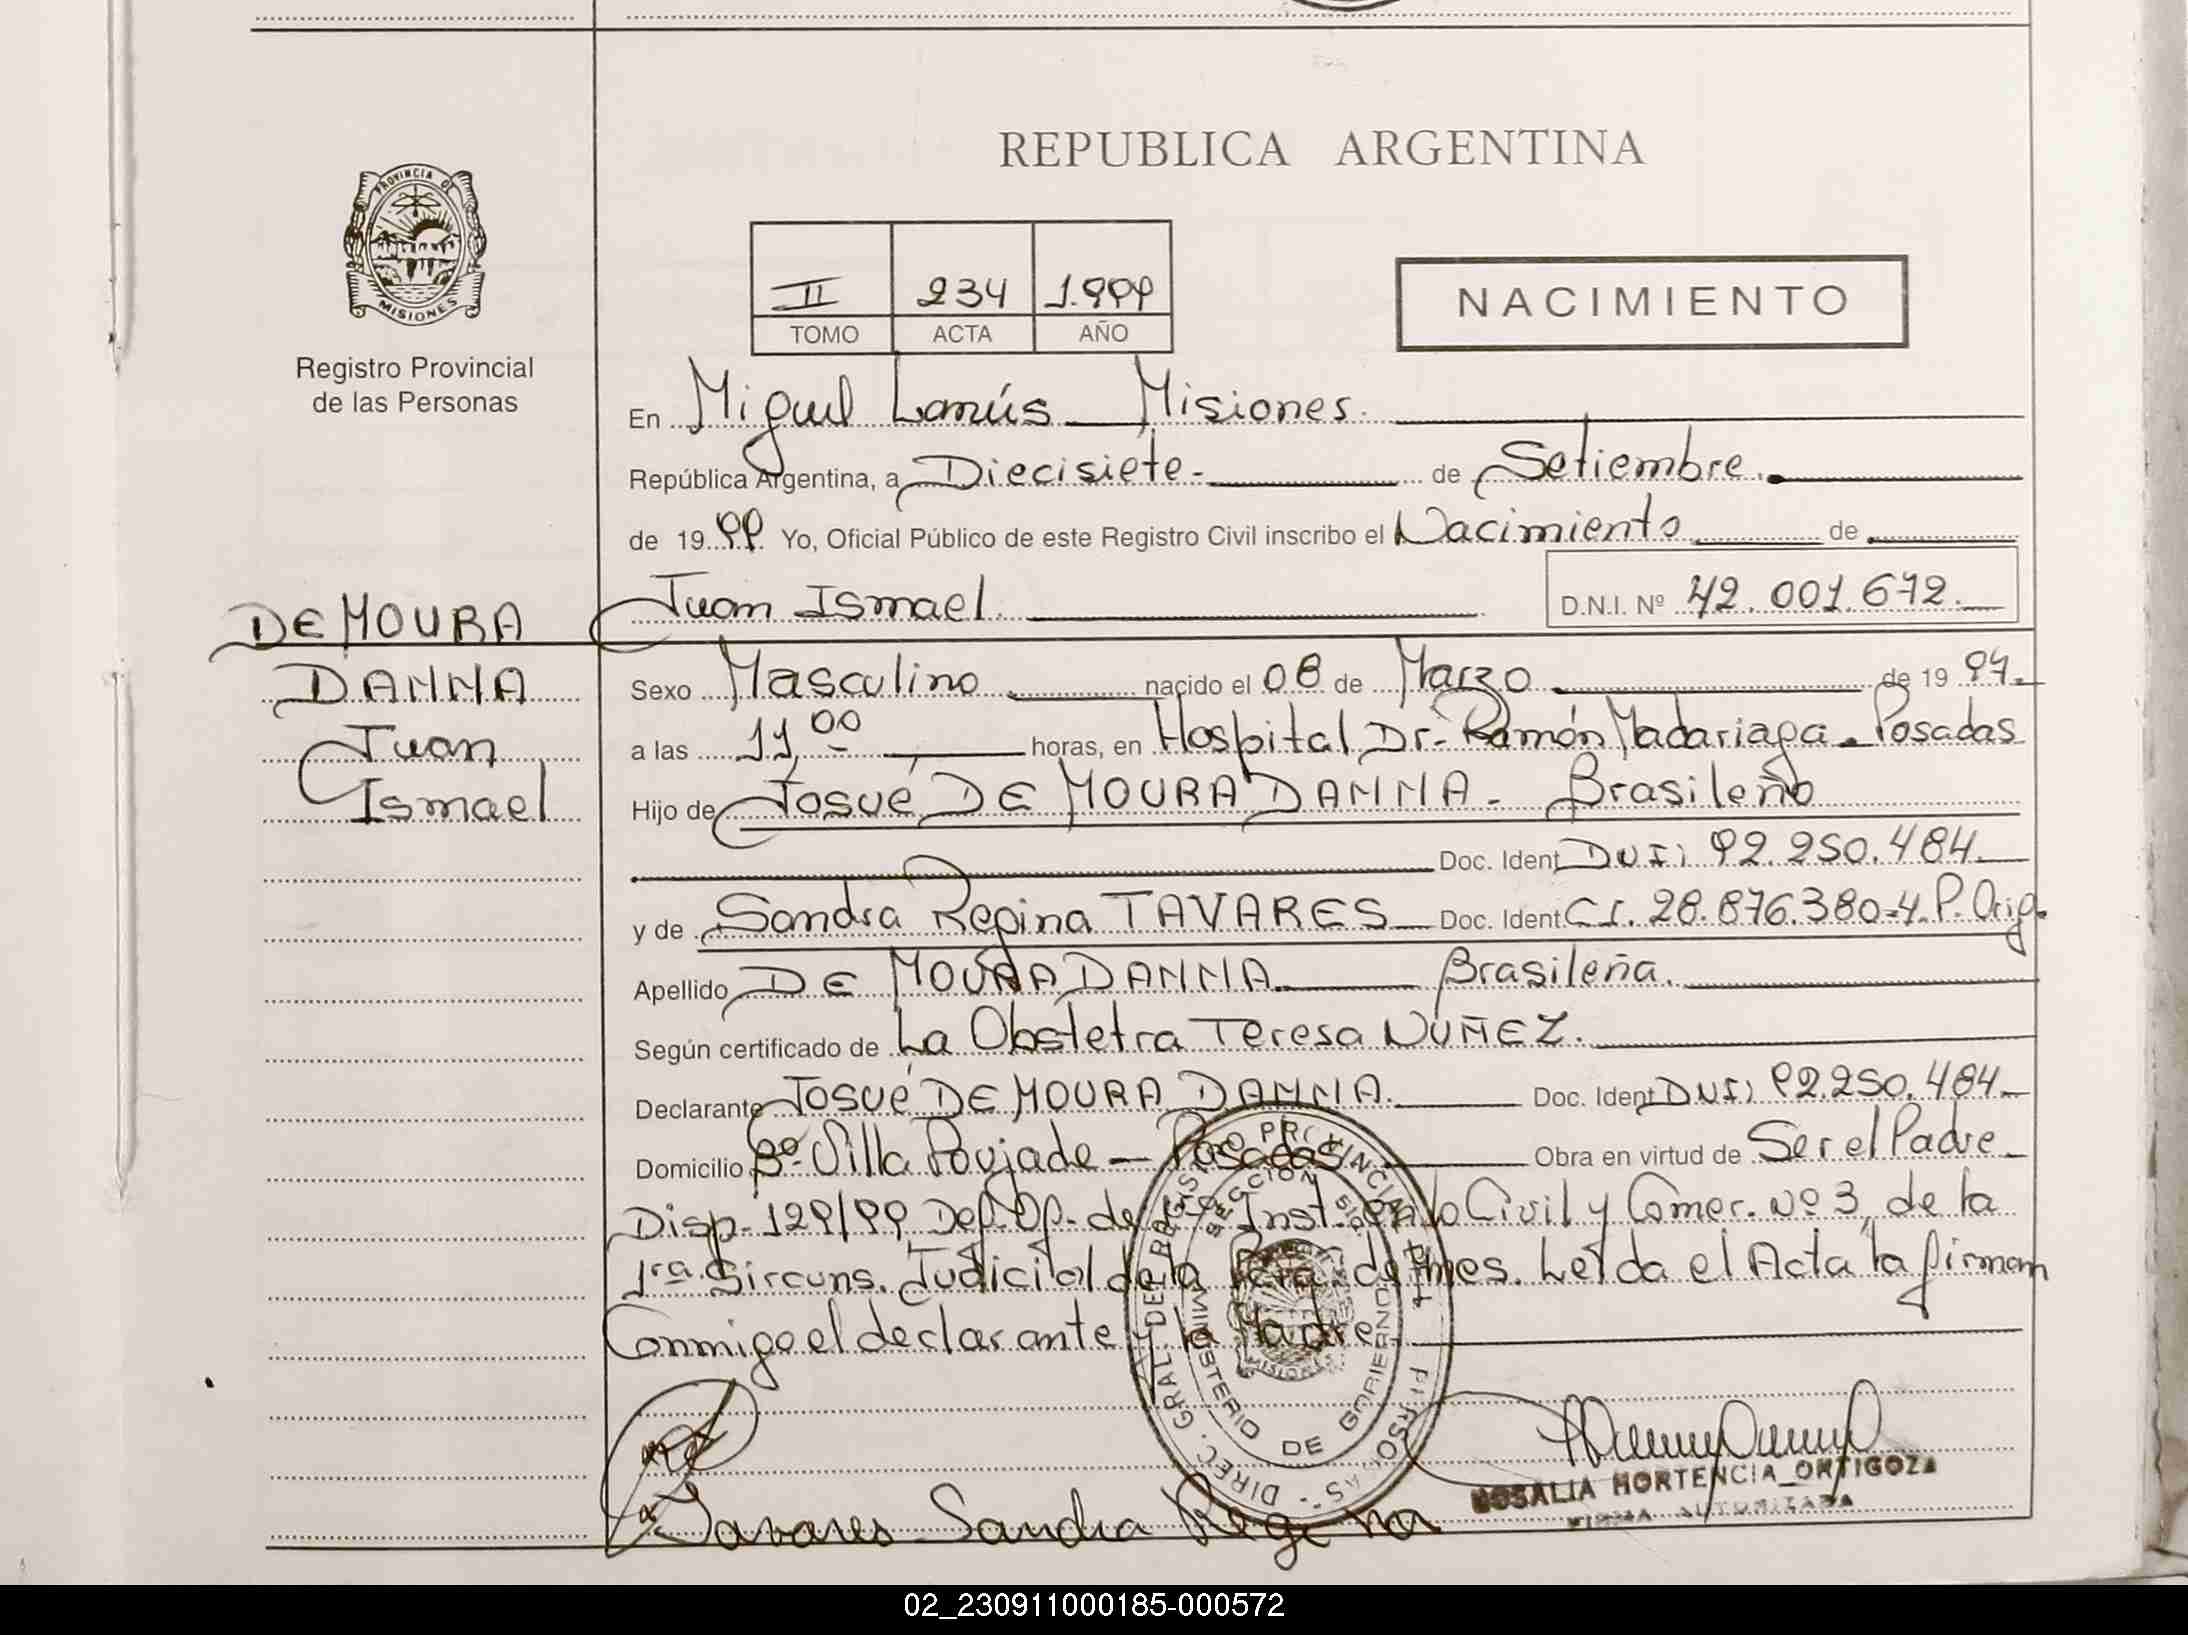 REPUBLICA ARGENTINA
PROVINCIA DE
MISIONES
Registro Provincial
de las Personas
II 234 1.999
TOMO ACTA AÑO
NACIMIENTO
En Miguel Lanús - Misiones.
República Argentina, a Diecisiete- de Setiembre.
de 1999 Yo, Oficial Público de este Registro Civil inscribo el Nacimiento de
Juan Ismael. D.N.I. Nº 42.001.672.
DE MOURA
DANNA
Juan
Ismael
Sexo Masculino nacido el 08 de Marzo de 1997.
a las 11,00 horas, en Hospital Dr. Ramón Madariaga. Posadas
Hijo de Josué DE MOURA DANNA - Brasileño
Doc. Ident DNI: 92.250.484.
y de Sandra Regina TAVARES Doc. Ident C.I. 28.876.380-4. P. Orig.
Apellido DE MOURA DANNA Brasileña.
Según certificado de La Obstetra Teresa NÚÑEZ.
Declarante Josué DE MOURA DANNA. Doc. Ident DNI: 92.250.484.
Domicilio Bº Villa Poujade - Posadas Obra en virtud de Ser el Padre
Disp. 129/99 Def. Of. de Inst. en lo Civil y Comer. Nº 3, de la
1ra. Circuns. Judicial de la Pcia. de Mnes. Leída el Acta la firman
Conmigo el declarante y la Madre.
DIREC. GRAL. DEL REGISTRO PROVINCIAL DE LAS PERSONAS
MINISTERIO DE GOBIERNO
MISIONES
Tavares Sandra Regina
ROSALIA HORTENCIA ORTIGOZA
FIRMA AUTORIZADA
02_230911000185-000572